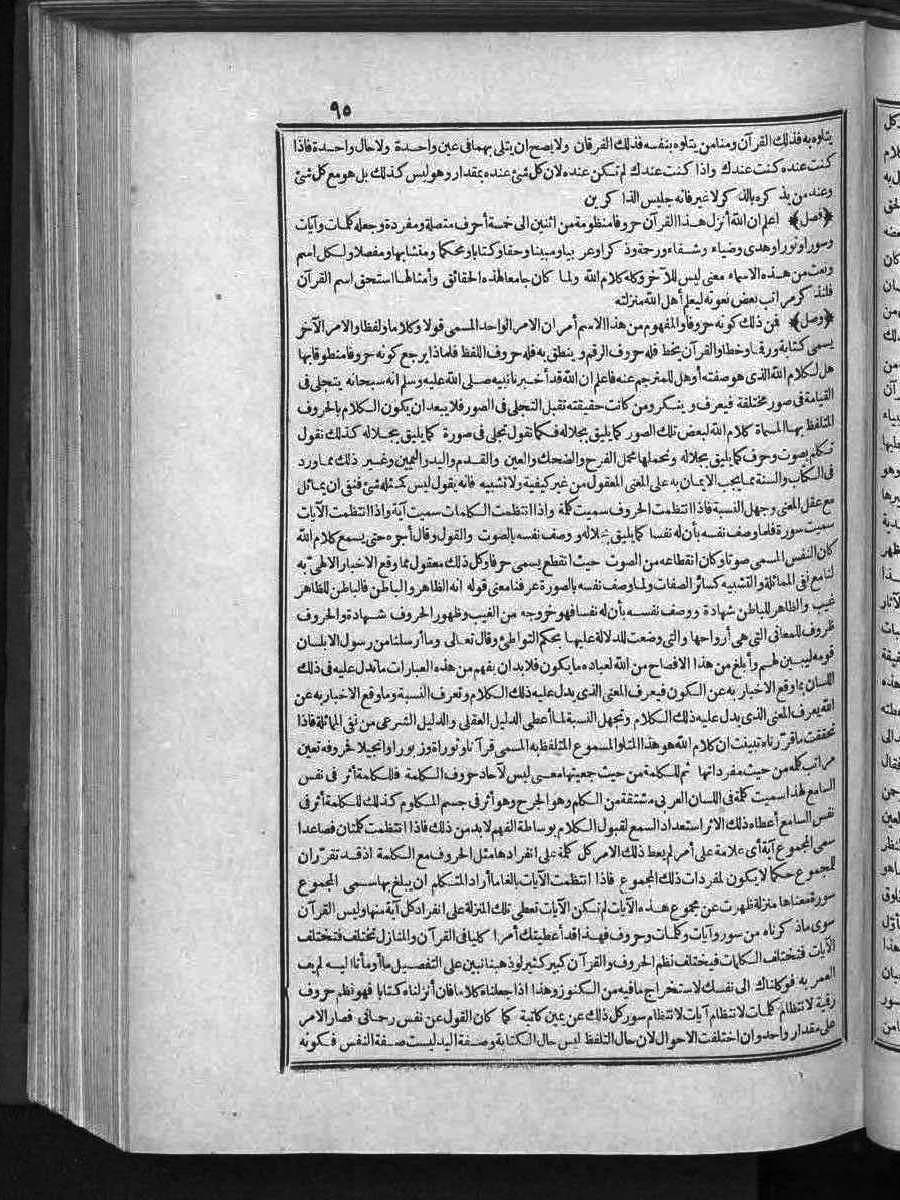 ٩٥
يتلوه به فذلك القرآن ومنا من يتلوه بنفسه فذلك الفرقان ولا يصح ان يتلى بهما فى عين واحدة ولا حال واحدة فاذا
كنت عنده كنت عندك واذا كنت عندك لم تكن عنده لان كل شئ عنده بمقدار وهو ليس كذلك بل هو مع كل شئ
وعند من يذكره بالذكر لا غير فانه جليس الذاكرين
﴿فصل﴾ اعلم ان الله أنزل هذا القرآن حروفا منظومة من اثنين الى خمسة أحرف متصلة ومفردة وجعله كلمات وآيات
وسورا ونورا وهدى وضياء وشفاء ورحمة وذكرا وعربيا ومبينا وحقا وكتابا ومحكما ومتشابها ومفصلا ولكل اسم
ونعت من هذه الاسماء معنى ليس للآخر وكله كلام الله ولما كان جامعا لهذه الحقائق وأمثالها استحق اسم القرآن
فلنذكر مراتب بعض نعوته ليعلم أهل الله منزلته
﴿وصل﴾ فمن ذلك كونه حروفا والمفهوم من هذا الاسم أمران الامر الواحد المسمى قولا وكلاما ولفظا والامر الآخر
يسمى كتابة ورقما وخطا والقرآن يخط فله حروف الرقم وينطق به فله حروف اللفظ فلماذا يرجع كونه حروفا منطوقا بها
هل لكلام الله الذى هو صفته أو هل للمترجم عنه فاعلم ان الله قد أخبرنا نبيه صلى الله عليه وسلم انه سبحانه يتجلى فى
القيامة فى صور مختلفة فيعرف وينكر ومن كانت حقيقته تقبل التجلى فى الصور فلا يبعد ان يكون الكلام بالحروف
المتلفظ بها المسماة كلام الله لبعض تلك الصور كما يليق بجلاله فكما نقول تجلى فى صورة كما يليق بجلاله كذلك نقول
تكلم بصوت وحرف كما يليق بجلاله ونحملها محمل الفرح والضحك والعين والقدم واليد واليمين وغير ذلك مما ورد
فى الكتاب والسنة مما يجب الايمان به على المعنى المعقول من غير كيفية ولا تشبيه فانه يقول ليس كمثله شئ فنفى ان يماثل
مع عقل المعنى وجهل النسبة فاذا انتظمت الحروف سميت كلمة واذا انتظمت الكلمات سميت آية واذا انتظمت الآيات
سميت سورة فلما وصف نفسه بأن له نفسا كما يليق بجلاله ووصف نفسه بالصوت والقول وقال أجره حتى يسمع كلام الله
كان النفس المسمى صوتا وكان انقطاعه من الصوت حيث انقطع يسمى حرفا وكل ذلك معقول مما وقع الاخبار الالهى به
لنا مع نفى المماثلة والتشبيه كسائر الصفات ولما وصف نفسه بالصورة عرفنا معنى قوله انه الظاهر والباطن فالباطن للظاهر
غيب والظاهر للباطن شهادة ووصف نفسه بأن له نفسا فهو خروجه من الغيب وظهور الحروف شهادة والحروف
ظروف للمعانى التى هى أرواحها والتى وضعت للدلالة عليها بحكم التواطئ وقال تعالى وما أرسلنا من رسول الا بلسان
قومه ليبين لهم وأبلغ من هذا الافصاح من الله لعباده ما يكون فلا بد ان يفهم من هذه العبارات ما تدل عليه فى ذلك
اللسان بما وقع الاخبار به عن الكون فيعرف المعنى الذى يدل عليه ذلك الكلام وتعرف النسبة وما وقع الاخبار به عن
الله يعرف المعنى الذى يدل عليه ذلك الكلام وتجهل النسبة لما أعطى الدليل العقلى والدليل الشرعى من نفى المماثلة فاذا
تحققت ما قررناه تبينت ان كلام الله هو هذا المتلو المسموع المتلفظ به المسمى قرآنا وتوراة وزبورا وانجيلا فحروفه تعين
مراتب كلمه من حيث مفرداتها ثم للكلمة من حيث جمعيتها معنى ليس لآحاد حروف الكلمة فللكلمة أثر فى نفس
السامع لهذا سميت كلمة فى اللسان العربى مشتقة من الكلم وهو الجرح وهو أثر فى جسم المكلوم كذلك للكلمة أثر فى
نفس السامع أعطاه ذلك الاثر استعداد السمع لقبول الكلام بوساطة الفهم لا بد من ذلك فاذا انتظمت كلمتان فصاعدا
سمى المجموع آية أى علامة على أمر لم يعط ذلك الامر كل كلمة على انفرادها مثل الحروف مع الكلمة اذ قد تقرر ان
للمجموع حكما لا يكون لمفردات ذلك المجموع فاذا انتظمت الآيات بالغا ما أراد المتكلم ان يبلغ بها سمى المجموع
سورة معناها منزلة ظهرت عن مجموع هذه الآيات لم تكن الآيات تعطى تلك المنزلة على انفراد كل آية منها وليس القرآن
سوى ما ذكرناه من سور وآيات وكلمات وحروف فهذا قد أعطيتك أمرا كليا فى القرآن والمنازل تختلف فتختلف
الآيات فتختلف الكلمات فيختلف نظم الحروف والقرآن كبير كثير لو ذهبنا نبين على التفصيل ما أومأنا اليه لم يف
العمر به فوكلناك الى نفسك لاستخراج ما فيه من الكنوز وهذا اذا جعلناه كلاما فان أنزلناه كتابا فهو نظم حروف
رقمية لانتظام كلمات لانتظام آيات لانتظام سور كل ذلك عن يمين كاتبة كما كان القول عن نفس رحمانى فصار الامر
على مقدار واحد وان اختلفت الاحوال لان حال التلفظ ليس حال الكتابة وصفة اليد ليست صفة النفس فكونه